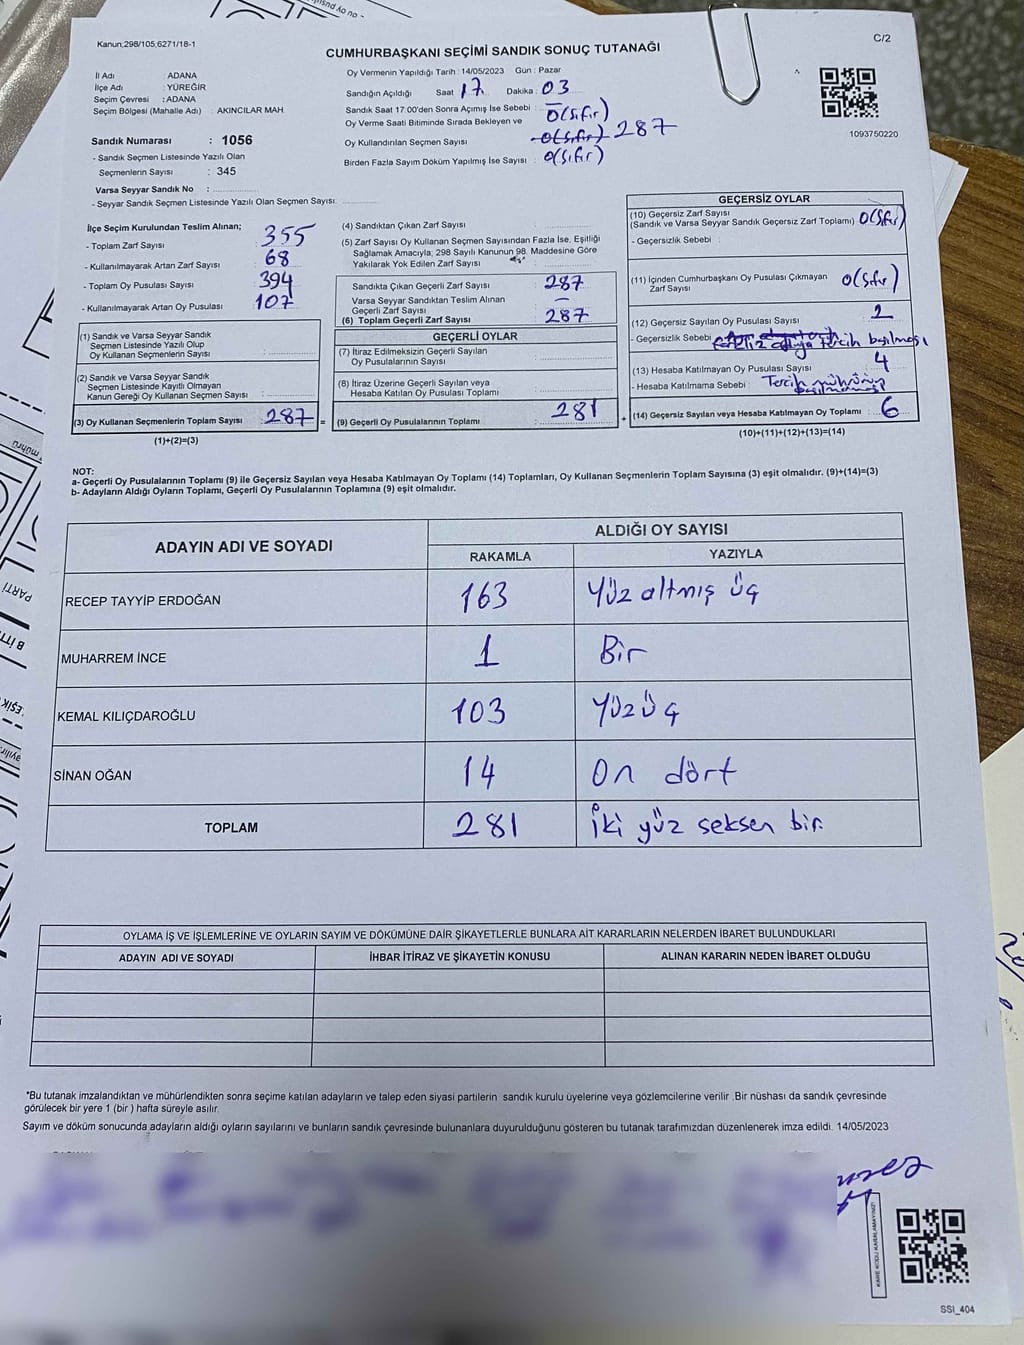 Kanun;298/105,6271/18-1
C/2
CUMHURBAŞKANI SEÇİMİ SANDIK SONUÇ TUTANAĞI
İl Adı : ADANA
İlçe Adı : YÜREĞİR
Seçim Çevresi : ADANA
Seçim Bölgesi (Mahalle Adı) : AKINCILAR MAH.
Sandık Numarası : 1056
- Sandık Seçmen Listesinde Yazılı Olan
Seçmenlerin Sayısı : 345
Varsa Seyyar Sandık No :
- Seyyar Sandık Seçmen Listesinde Yazılı Olan Seçmen Sayısı:
Oy Vermenin Yapıldığı Tarih : 14/05/2023 Gün : Pazar
Sandığın Açıldığı Saat 17 Dakika : 03
Sandık Saat 17:00'den Sonra Açımış İse Sebebi : 0(sıfır)
Oy Verme Saati Bitiminde Sırada Bekleyen ve
Oy Kullandırılan Seçmen Sayısı 0(sıfır) 287
Birden Fazla Sayım Döküm Yapılmış İse Sayısı : 0(sıfır)
1093750220
İlçe Seçim Kurulundan Teslim Alınan;
- Toplam Zarf Sayısı 355
- Kullanılmayarak Artan Zarf Sayısı 68
- Toplam Oy Pusulası Sayısı 394
- Kullanılmayarak Artan Oy Pusulası 107
(1) Sandık ve Varsa Seyyar Sandık
Seçmen Listesinde Yazılı Olup
Oy Kullanan Seçmenlerin Sayısı :
(2) Sandık ve Varsa Seyyar Sandık
Seçmen Listesinde Kayıtlı Olmayan
Kanun Gereği Oy Kullanan Seçmen Sayısı :
(3) Oy Kullanan Seçmenlerin Toplam Sayısı : 287 =
(1)+(2)=(3)
(4) Sandıktan Çıkan Zarf Sayısı
(5) Zarf Sayısı Oy Kullanan Seçmen Sayısından Fazla İse, Eşitliği
Sağlamak Amacıyla; 298 Sayılı Kanunun 98. Maddesine Göre
Yakılarak Yok Edilen Zarf Sayısı
Sandıkta Çıkan Geçerli Zarf Sayısı 287
Varsa Seyyar Sandıktan Teslim Alınan
Geçerli Zarf Sayısı –
(6) Toplam Geçerli Zarf Sayısı 287
GEÇERLİ OYLAR
(7) İtiraz Edilmeksizin Geçerli Sayılan
Oy Pusulalarının Sayısı
(8) İtiraz Üzerine Geçerli Sayılan veya
Hesaba Katılan Oy Pusulası Toplamı
(9) Geçerli Oy Pusulalarının Toplamı 281 +
GEÇERSİZ OYLAR
(10) Geçersiz Zarf Sayısı
(Sandık ve Varsa Seyyar Sandık Geçersiz Zarf Toplamı) 0(sıfır)
- Geçersizlik Sebebi :
(11) İçinden Cumhurbaşkanı Oy Pusulası Çıkmayan
Zarf Sayısı 0(sıfır)
(12) Geçersiz Sayılan Oy Pusulası Sayısı 2
- Geçersizlik Sebebi tercih basılması
(13) Hesaba Katılmayan Oy Pusulası Sayısı 4
- Hesaba Katılmama Sebebi : Tercih mührünün
basılmaması
(14) Geçersiz Sayılan veya Hesaba Katılmayan Oy Toplamı : 6
(10)+(11)+(12)+(13)=(14)
NOT:
a- Geçerli Oy Pusulalarının Toplamı (9) ile Geçersiz Sayılan veya Hesaba Katılmayan Oy Toplamı (14) Toplamları, Oy Kullanan Seçmenlerin Toplam Sayısına (3) eşit olmalıdır. (9)+(14)=(3)
b- Adayların Aldığı Oyların Toplamı, Geçerli Oy Pusulalarının Toplamına (9) eşit olmalıdır.
ADAYIN ADI VE SOYADI
ALDIĞI OY SAYISI
RAKAMLA YAZIYLA
RECEP TAYYİP ERDOĞAN 163 Yüz altmış üç
MUHARREM İNCE 1 Bir
KEMAL KILIÇDAROĞLU 103 Yüz üç
SİNAN OĞAN 14 On dört
TOPLAM 281 İki yüz seksen bir.
OYLAMA İŞ VE İŞLEMLERİNE VE OYLARIN SAYIM VE DÖKÜMÜNE DAİR ŞİKAYETLERLE BUNLARA AİT KARARLARIN NELERDEN İBARET BULUNDUKLARI
ADAYIN ADI VE SOYADI İHBAR İTİRAZ VE ŞİKAYETİN KONUSU ALINAN KARARIN NEDEN İBARET OLDUĞU
*Bu tutanak imzalandıktan ve mühürlendikten sonra seçime katılan adayların ve talep eden siyasi partilerin sandık kurulu üyelerine veya gözlemcilerine verilir .Bir nüshası da sandık çevresinde
görülecek bir yere 1 (bir ) hafta süreyle asılır.
Sayım ve döküm sonucunda adayların aldığı oyların sayılarını ve bunların sandık çevresinde bulunanlara duyurulduğunu gösteren bu tutanak tarafımızdan düzenlenerek imza edildi. 14/05/2023
KARE KODU KARALAMAYINIZ!
SSI_404
PARTİ